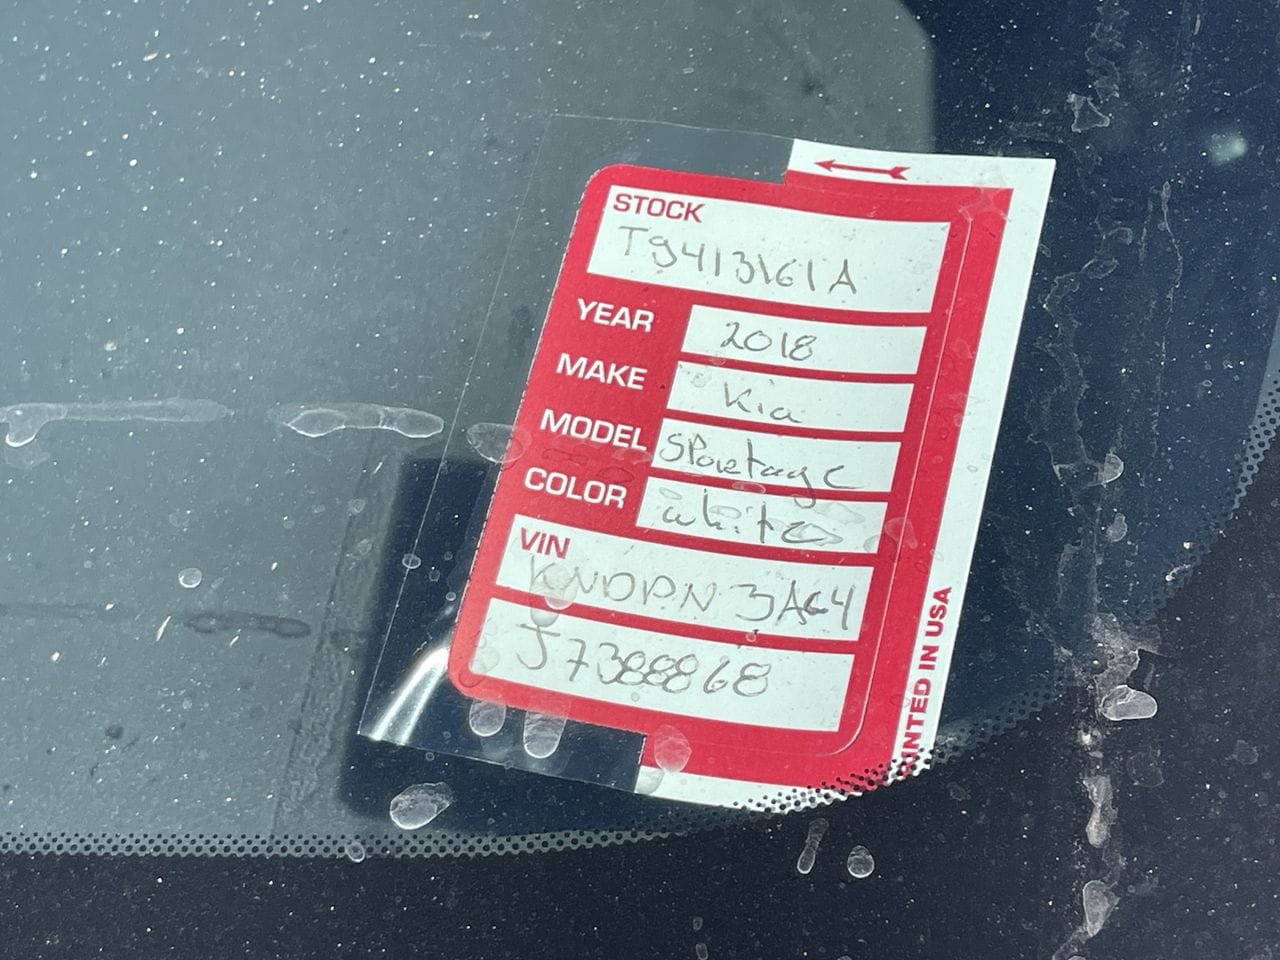 STOCK
T9413161A
YEAR 2018
MAKE Kia
MODEL SPortage
COLOR white
VIN
KNDPN3AC4
J7388868
INTED IN USA